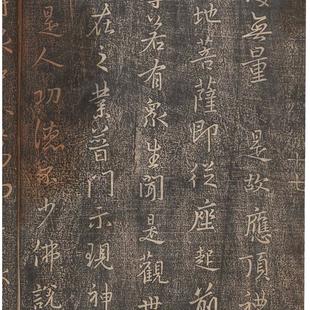 無量是故應頂禮
地菩薩即從座起前
若有眾生聞是觀世
在之業普門示現神
是人功德不少佛說